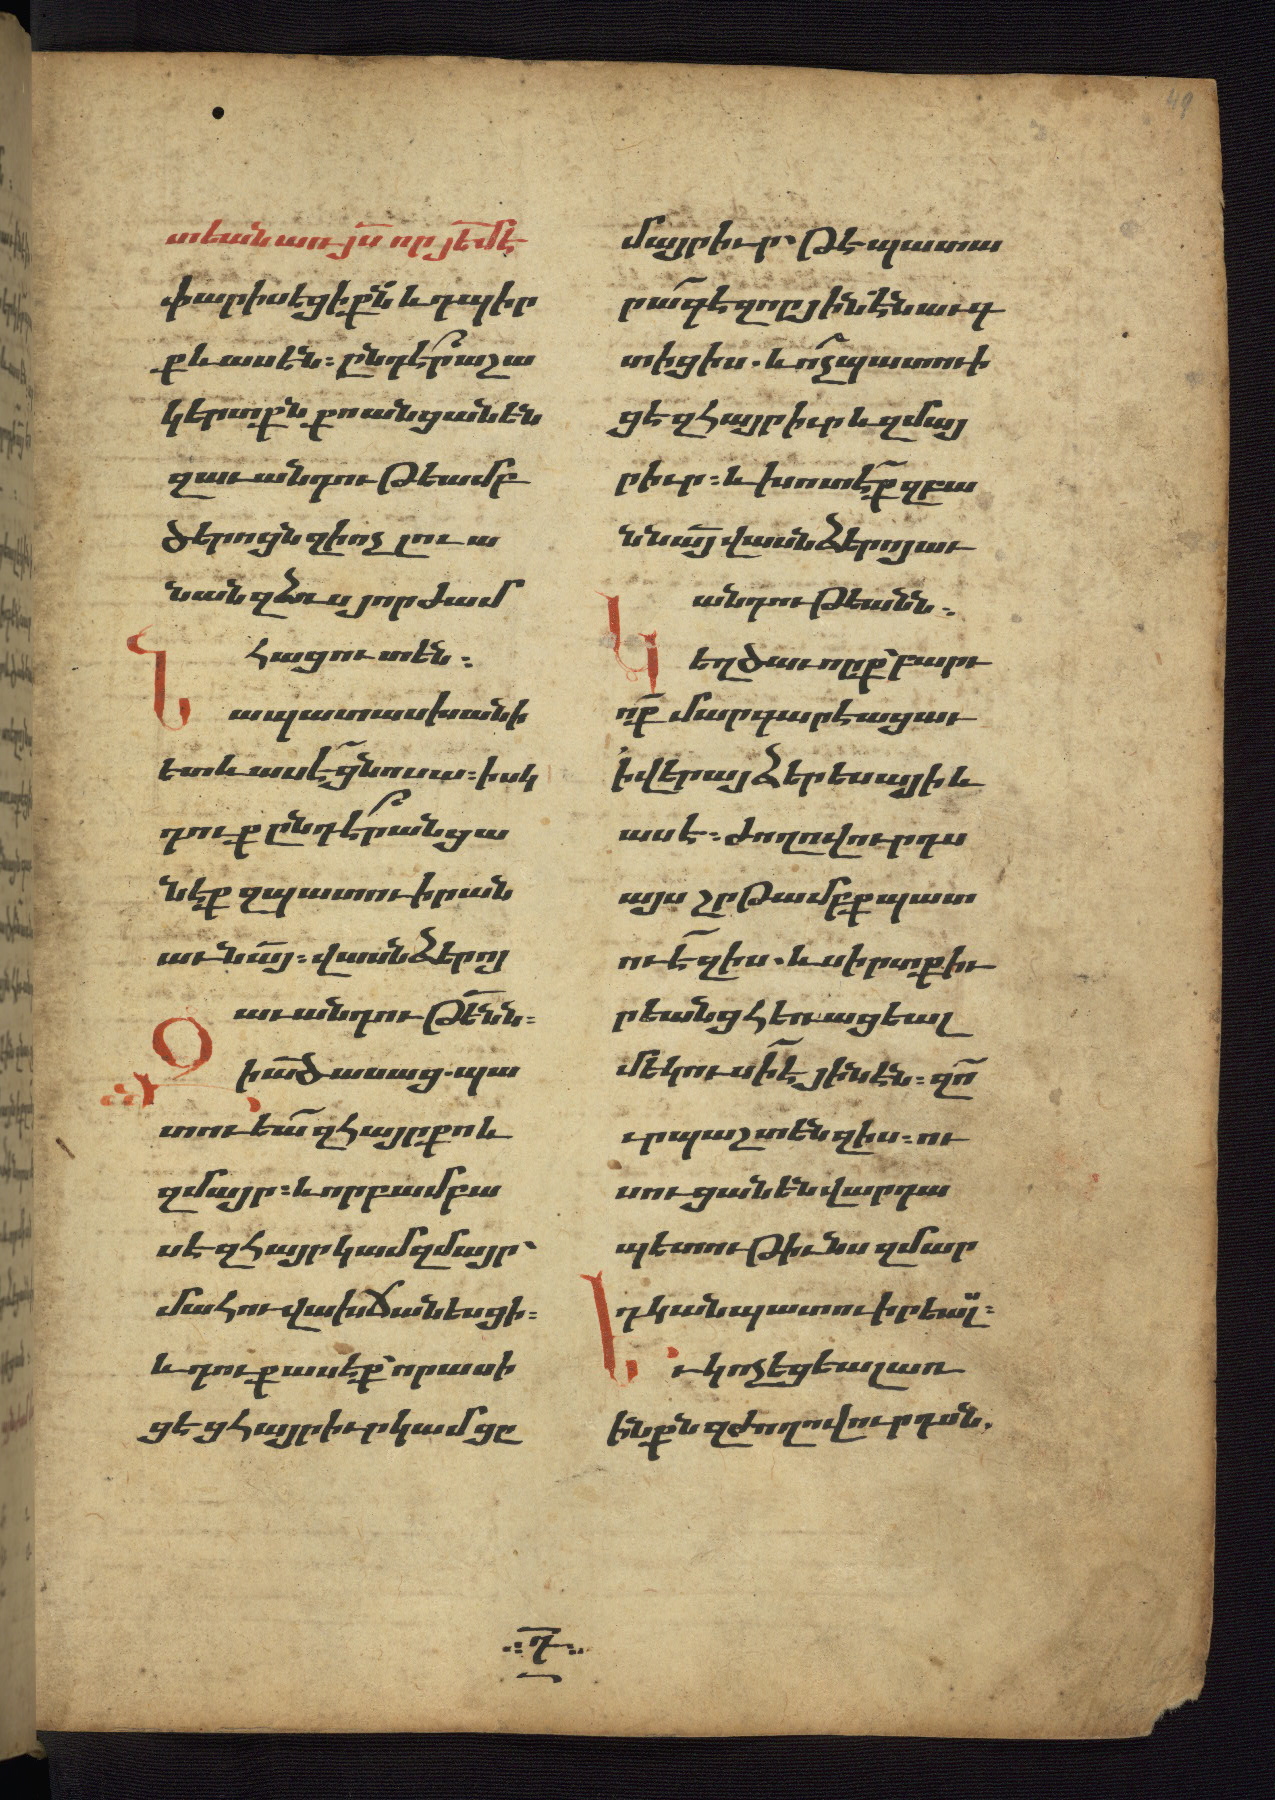 տեան առ յս որ յեմէ
փարիսեցիքն և դպիր
ք և ասեն։ ընդէր աշա
կերտքն քո անցանեն
զաւանդութեամբ
ծերոցն զի ոչ լուա
նան զձեռս յորժամ
հաց ուտեն։
Ն
ա պատասխանի
ետ և ասէ ցնոսա։ իսկ
դուք ընդէր անցա
նէք զպատուիրան
աւն այ։ վասն ձերոյ
աւանդութենն։
Զ
ի ած ասաց. պա
տուեա զհայր քո և
զմայր։ և որ բամբա
սէ զհայր կամ զմայր՝
մահու վախճանեսցի։
և դուք ասէք՝ որ ասի
ցէ ցհայր իւր կամ ցը
մայր իւր՝ թէ պատա
րագ է զոր յինէն աւգ
տիցիս. և ոչ պատուի
ցէ զհայր իւր և զմայ
ր իւր։ և խոտէք զբա
նն այ վասն ձերոյ աւ
անդութեանն։
Կ
եղծաւորք՝ բարւ
ոք մարգարէացաւ
ի վերայ ձեր եսայի և
ասէ։ ժողովուրդս
այս շրթամբք պատ
ուէ զիս. և սիրտք իւ
րեանց հեռացեալ
մեկուսի է յինէն։ զո
ւր պաշտեն զիս։ ու
սուցանեն վարդա
պետութիւնս զմար
դկան պատուիրեալ։
Ե
ւ կոչեցեալ առ
ինքն զժողովուրդսն.
է